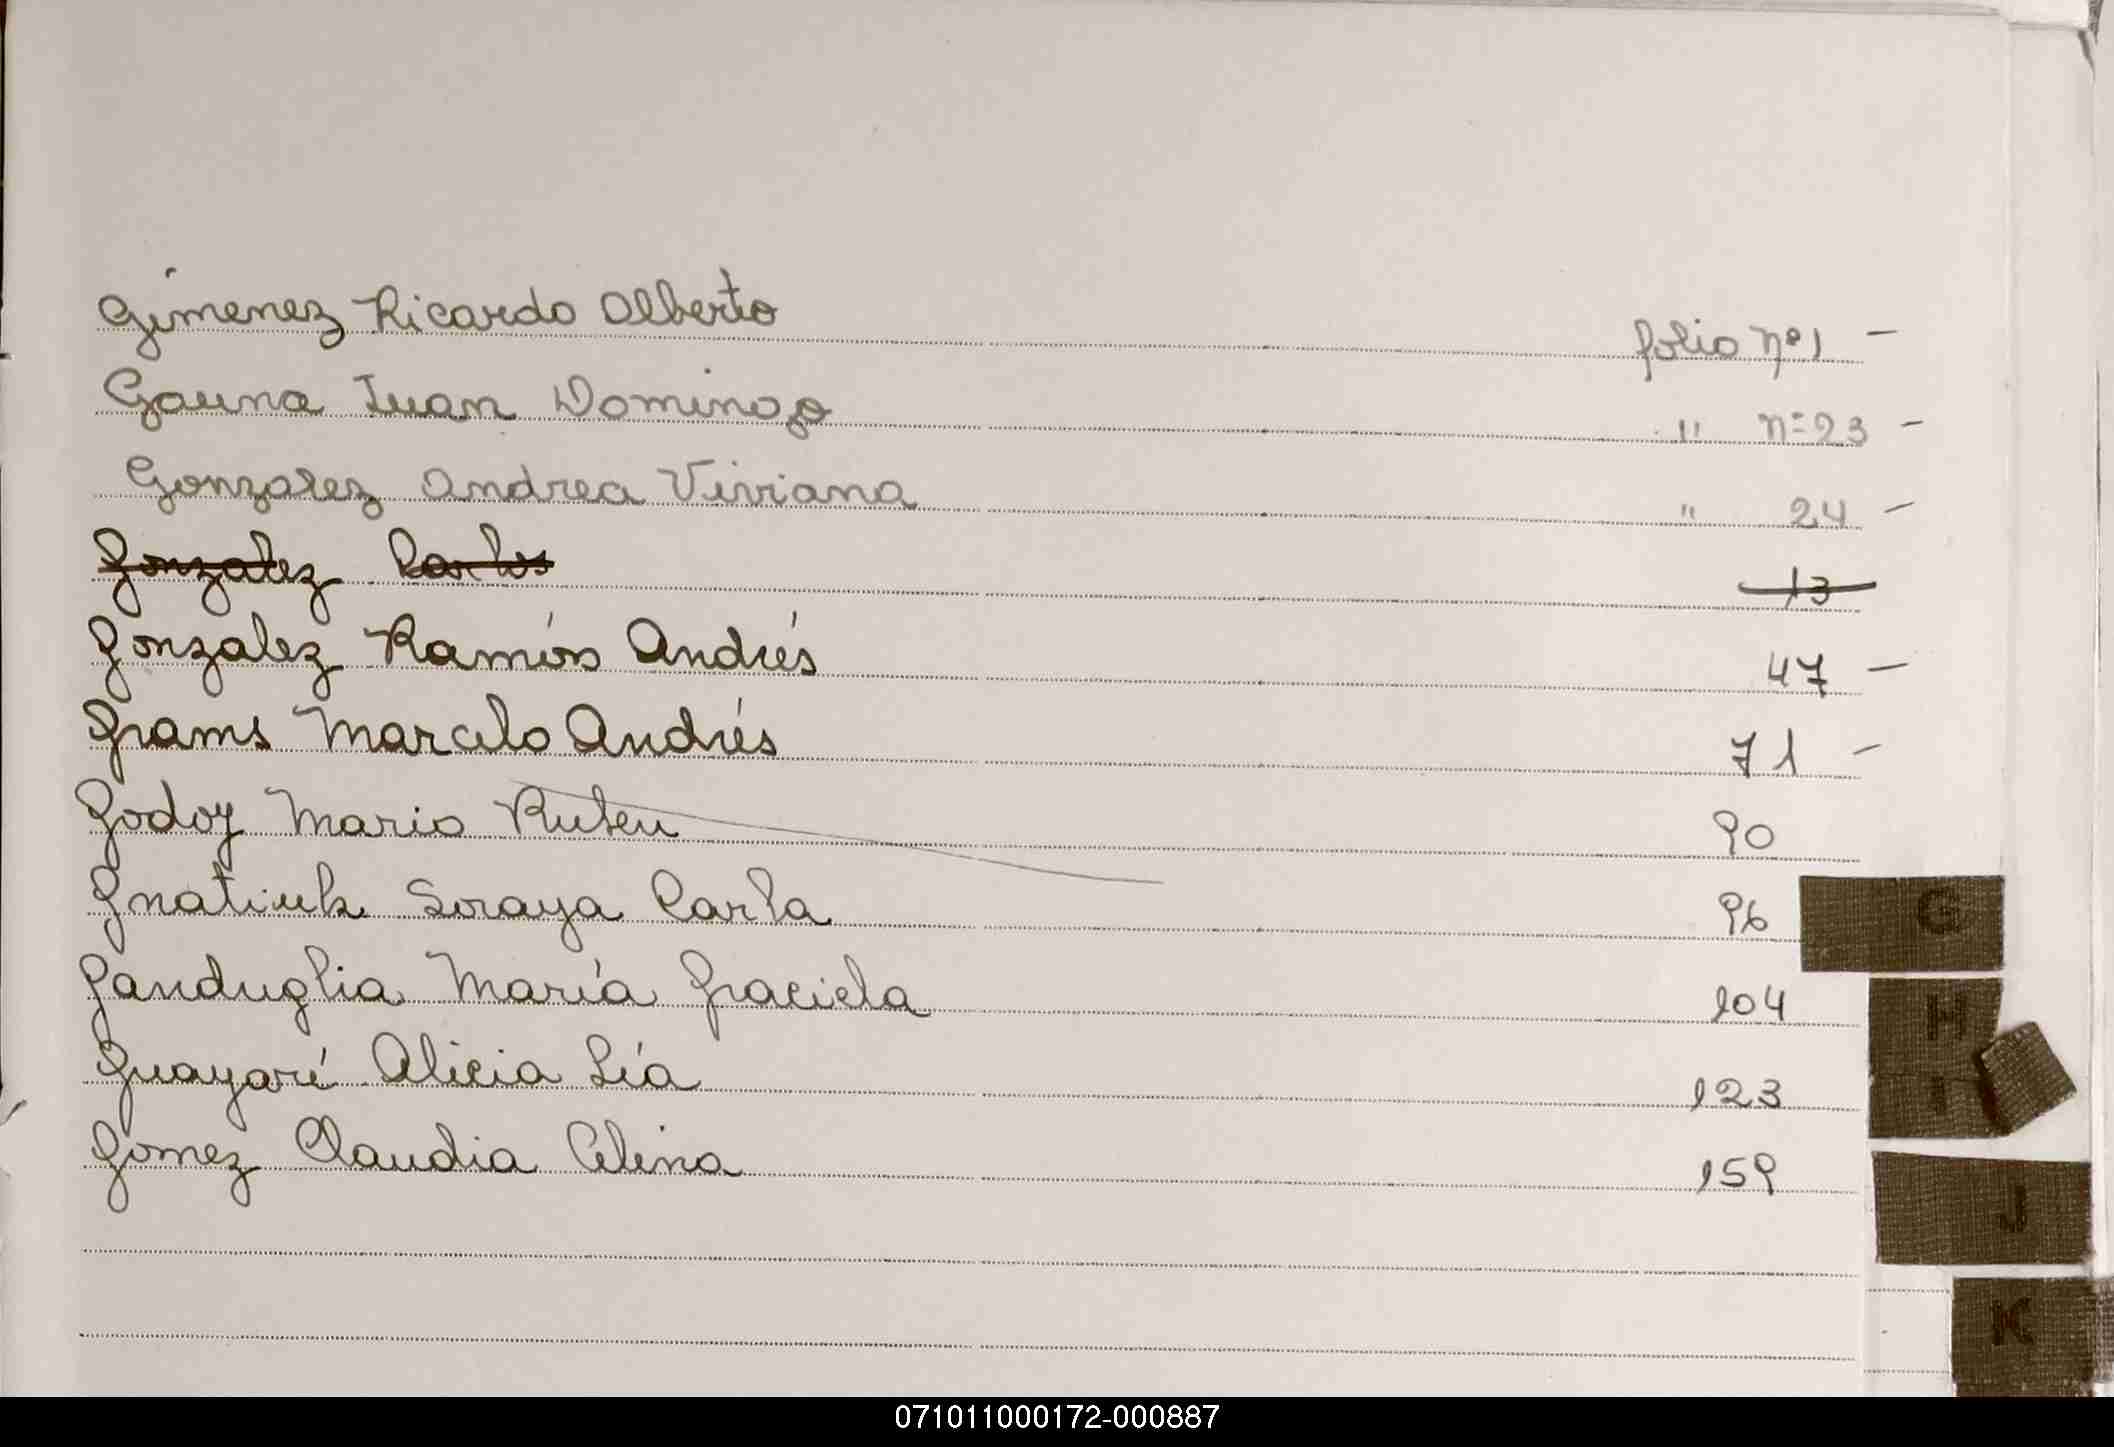 Gimenez Ricardo Alberto folio nº 1 -
Gauna Juan Domingo " nº 23 -
Gonzalez Andrea Viviana " 24 -
Gonzalez Carlos 13
Gonzalez Ramón Andrés 47 -
Grams Marcelo Andrés 71 -
Godoy Mario Ruben 90
Gnatiuk Soraya Carla 96
G
Ganduglia María Graciela 104
H
Guayaré Alicia Lía 123
I
Gomez Claudia Celina 159
J
K
071011000172-000887